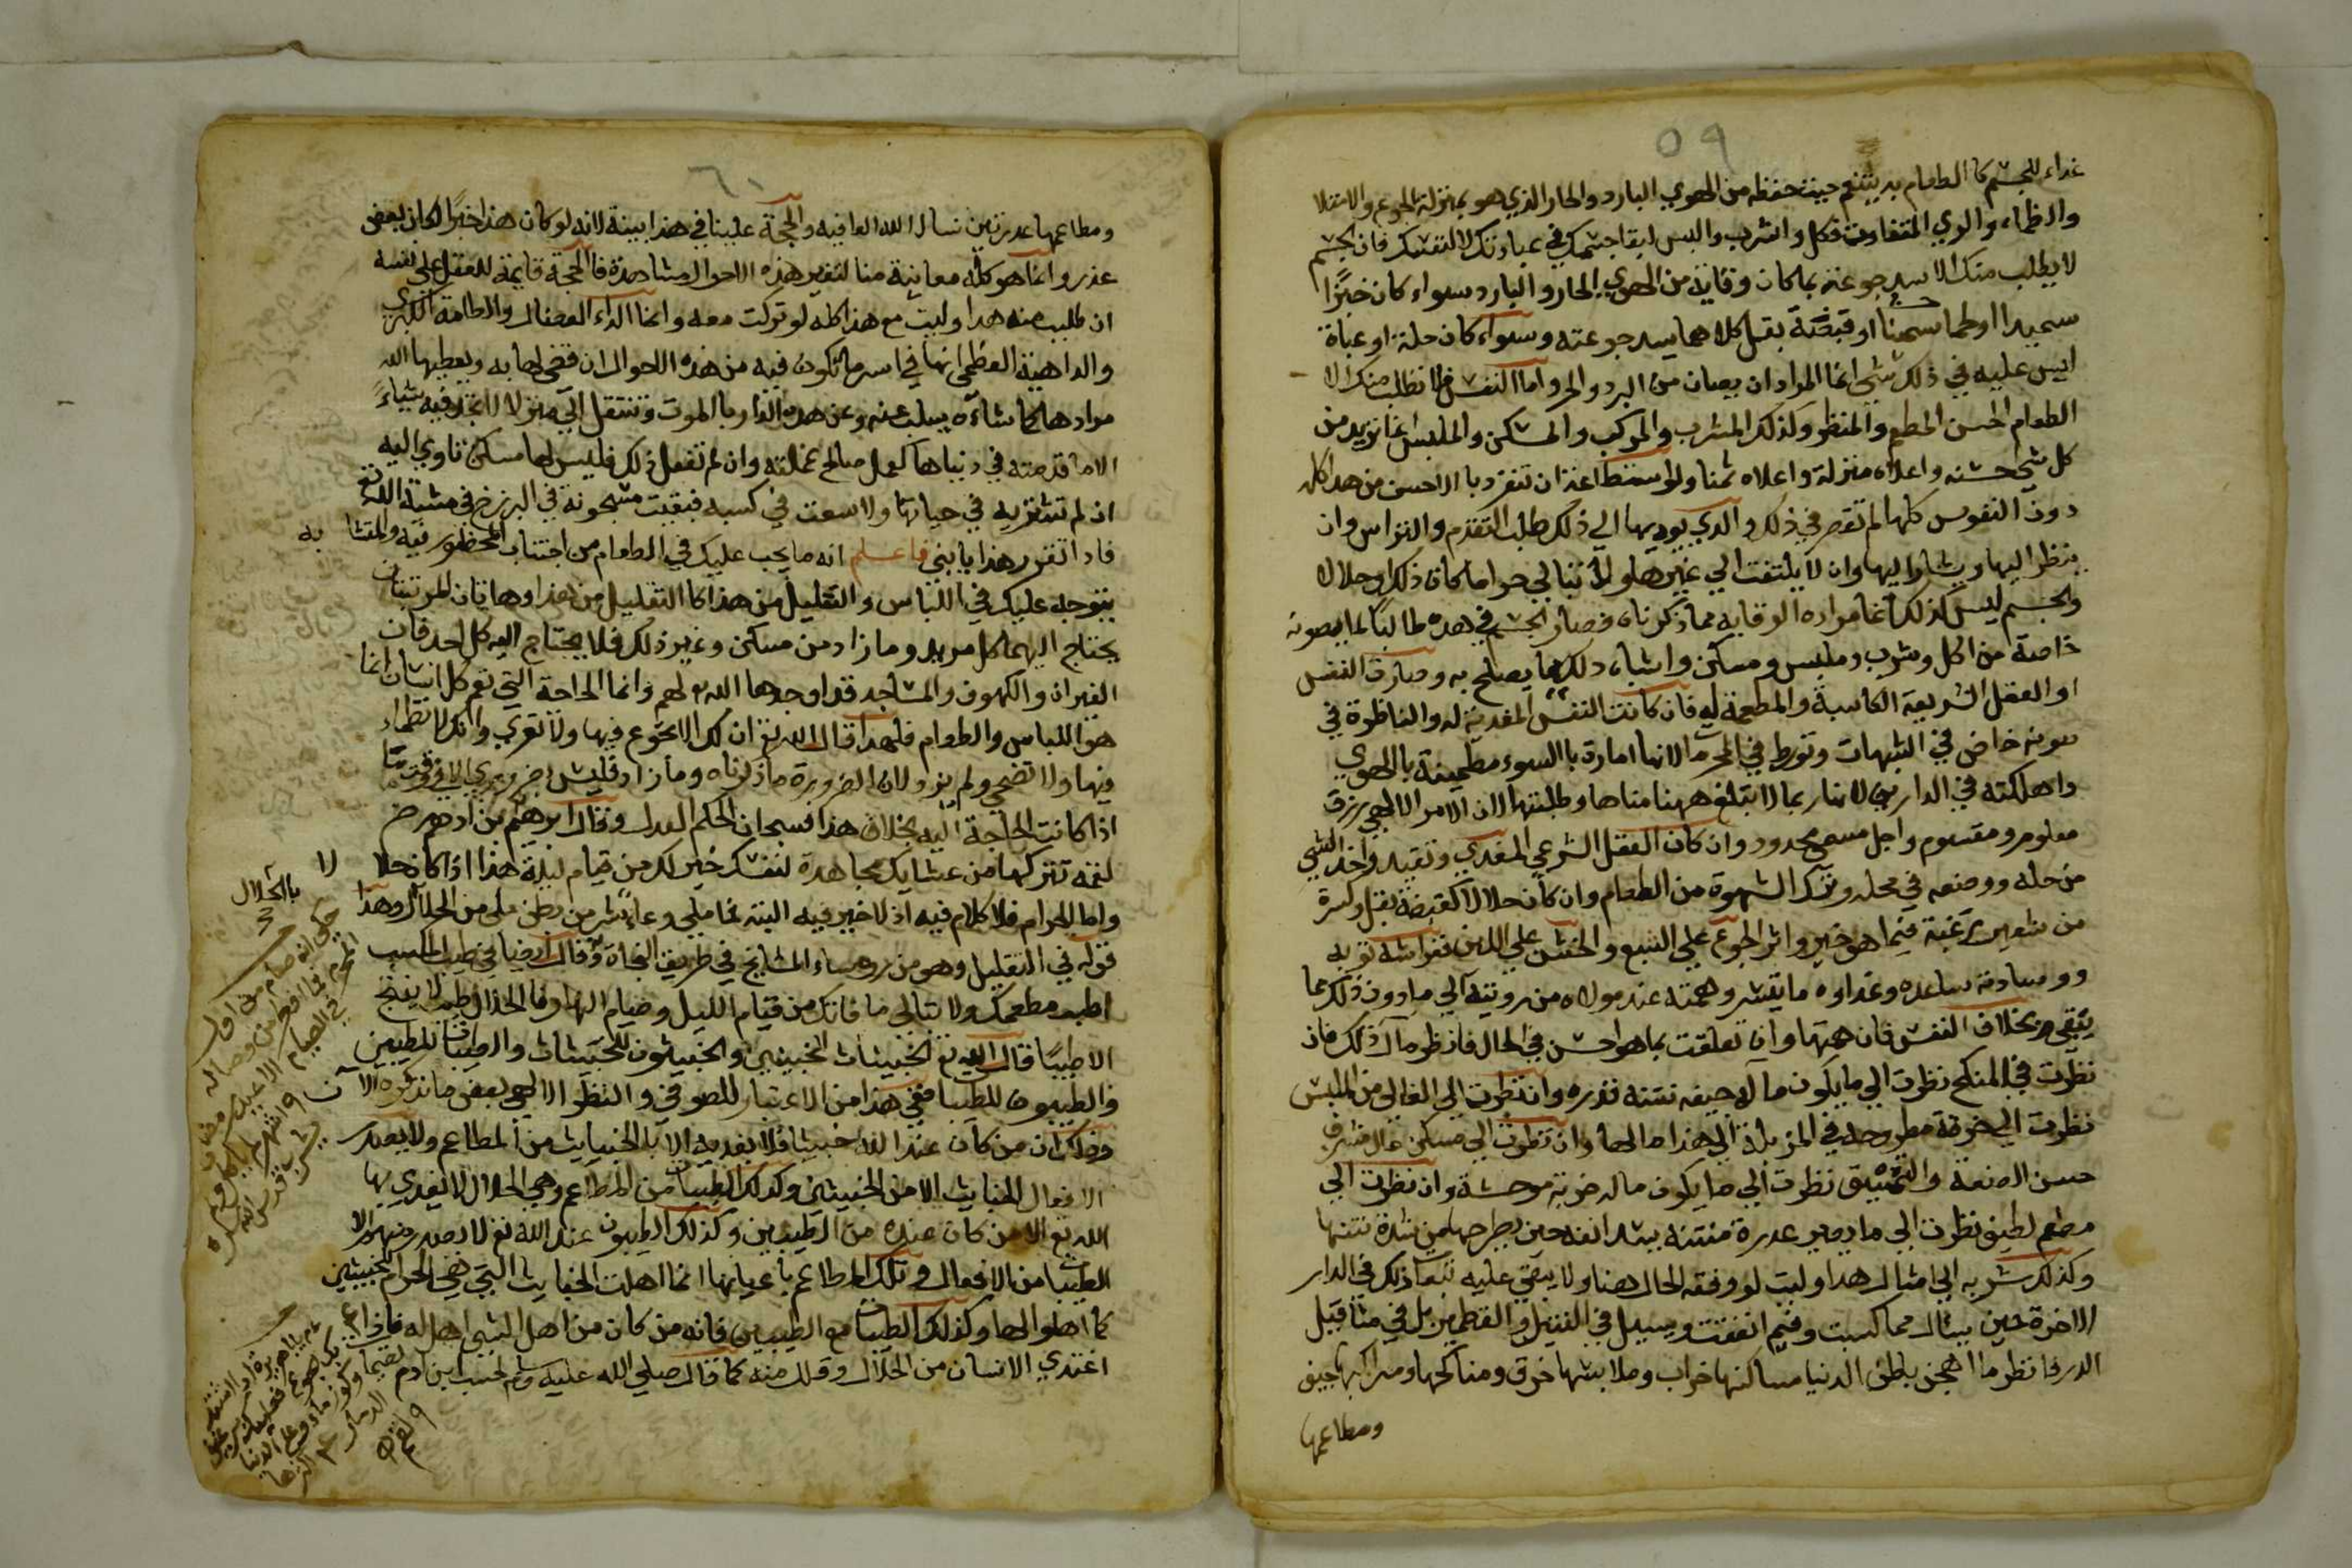 ٥٩
غداء للجسم كا الطعام به يتنعم حيث حفظه من الهوي البارد والحار الذي هو بمنزلة الجوع والامتلا
والظماء والري المتفاوت فكل واشرب والبس لبقا جسمك في عبادتك لا لنفسك فان الجسم
لا يطلب منك الا سد جوعته بما كان وقايته من الهوي الحار والبارد سواء كان خبزًا
سميدا او لحما سمينا او قبضة بقل كلاهما يسد جوعته وسواء كان حلة او عباة
ليس عليه في ذلك شي انما المراد ان يصان من البرد والحر واما النفس فلا تطلب منك الا
الطعام الحسن المطعم والمنظر وكذلك المشرب والمركب والمسكن والملبس انما تريد من
كل شي احسنه واعلاه منزلة واعلاه ثمنا ولو استطاعت ان تنفرد با الاحسن من هذا كله
دون النفوس كلها لم تقصر في ذلك والذي يوديها الي ذلك طلب التقدم والتراس وان
ينظر اليها ويشار اليها وان لا يلتفت الي غيرها ولا تبالي حراما كان ذلك او حلالا
والجسم ليس كذلك انما مراده الوقايه مما ذكرناه فصار الجسم في هذه طالبًا لما يصونه
خاصة من اكل وشرب وملبس ومسكن واشباه ذلك مما يصلح به وصارت النفس
او العقل الشريعة الكاسبة والمطعمة له فان كانت النفس المغدية له والناظرة في
صونه خاض في الشبهات وتورط في المحرمات لانها امارة با السوء مطمينة بالهوي
واهلكته في الدارين لانها ربما لا تبلغ ههنا مناها وطلبتها لان الامر الالهي برزق
معلوم ومقسوم واجل مسمي محدود وان كان العقل الشرعي المغدي وتقيد واخد الشي
من حله ووضعه في محله وترك الشهوة من الطعام وان كان حلالا كقبضة بقل وكسرة
من شعير رغبة فيما هو خير واثر الجوع علي الشبع والخشن علي اللين فراشه ثوبه
ووسادته ساعده وغداوه ما تيسر وهمته عند مولاه من رويته الي ما دون ذلك مما
يبقي بخلاف النفس فان همتها وان تعلقت بما هو احسن في الحال فانظر مال ذلك فان
نظرت في المنكح نظرت الي ما يكون ماله جيفه نتنة قذره وان نظرت الي الغالي من الملبس
نظرت الي خرقة مطروحة في المزبلة الي هذا مالها وان نظرت الي مسكن عال مشرف
حسن الصنعة والتنميق نظرت الي ما يكون ماله خربة موحشة وان نظرت الي
مطعم لطيف نظرت الي ما يصير عدرة منتنة يسد انفه حين يطرحها من شدة نتنها
وكذلك شربه الي امثال هذا وليت لو وفقه الحال هنا ولا يبقي عليه تبعات ذلك في الدار
الاخرة حين يسال مما كسبت وفيم انفقت ويسيل في الفتيل والقطمير بل في مثاقيل
الدر فانظر ما اهجن باطن الدنيا مساكنها خراب وملابسها خرق ومناكحها ومراكبها جيف
ومطاعمها
٦٠
ومطاعمها عدر نتن نسال الله العافيه والحجة علينا في هذا بينة لانه لو كان هذا خبرًا لكان بعض
عذر وانما هو كله معاينة منا لتغير هذه الاحوال مشاهدة فا الحجة قايمة للعقل علي نفسه
ان طلبت منه هدا وليت مع هذا كله لو تركت معه وانما الداء العضال والطامة الكبري
والداهية العظمي انها في اسر ما تكون فيه من هذه الاحوال ان قضي لها به ويعطيها الله
مرادها كما شاءه يسلب عنه وعن هده الدار با الموت وتنتقل الي منزل لا تجد فيه شياءً
الا ما قدمته في دنياها كعمل صالح عملته وان لم تفعل ذلك فليس لها مسكن تاوي اليه
اذ لم تشتريه في حياتها ولا سعت في كسبه فبقيت مسجونة في البرزخ في مشية الله تع
فاذا تقرر هذا يا بني فاعلم انه ما يجب عليك في الطعام من اجتناب المحظور فيه والمتشابه
يتوجه عليك في اللباس والتقليل من هذا كا التقليل من هذا وهاتان المرتبتان
يحتاج اليهما كل مريد وما زاد من مسكن وغير ذلك فلا يحتاج اليه كل احد فان
الغيران والكهوف والمساجد قد اوجدها الله تع لهم وانما الحاجة التي تعم كل انسان انما
هو اللباس والطعام فلهذا قال الله تع ان لك الا تجوع فيها ولا تعري وانك لا تظماء
فيها ولا تضحي ولم يزد لان الضرورة ما ذكرناه وما زاد فليس بضروري الا في وقت ما
اذا كانت الحاجة اليه بخلاف هذا فسبحان الحكم العدل وقال ابرهيم بن ادهم رض
لقمة تتركها من عشايك مجاهدة لنفسك خير لك من قيام ليلة هذا اذا كان حلالا
واما الحرام فلا كلام فيه اذ لا خير فيه البتة فما ملي وعاء شر من بطن ملي من الحلال وهذا
قوله في التقليل وهو من روساء المشايخ في طريق النجاة وقال ايضا في طيب المكسب
اطب مطعمك ولا تبالي ما فاتك من قيام الليل وصيام النهار فا الحلال طيب لا ينتج
الا طيبًا قال الله تع الخبيثات للخبيثين والخبيثون للخبيثات والطيبات للطيبين
والطيبون للطيبات ففي هذا من الاعتبار للصوفي والنظر الالهي بعض ما نذكره الان
وذلك ان من كان عند الله خبيثا فلا يغديه الا با الخبايث من المطاعم ولا يصدر
الافعال الخبايث الا من الخبيثين وكذلك الطيبات من المطاعم وهي الحلال لا يغدي بها
الله تع الا من كان عنده من الطيبين وكذلك الطيبون عند الله تع لا يصدر منهم الا
الطيبات من الافعال وتلك المطاعم باعيانها انما اهلت الخبايث التي هي الحرام للخبيثين
كما اهلوا لها وكذلك الطيبات مع الطيبين فانه من كان من اهل الشي اهل له فاذا
اغتدي الانسان من الحلال وقلل منه كما قال صلي الله عليه وسلم لحسب ابن ادم
بالحلال